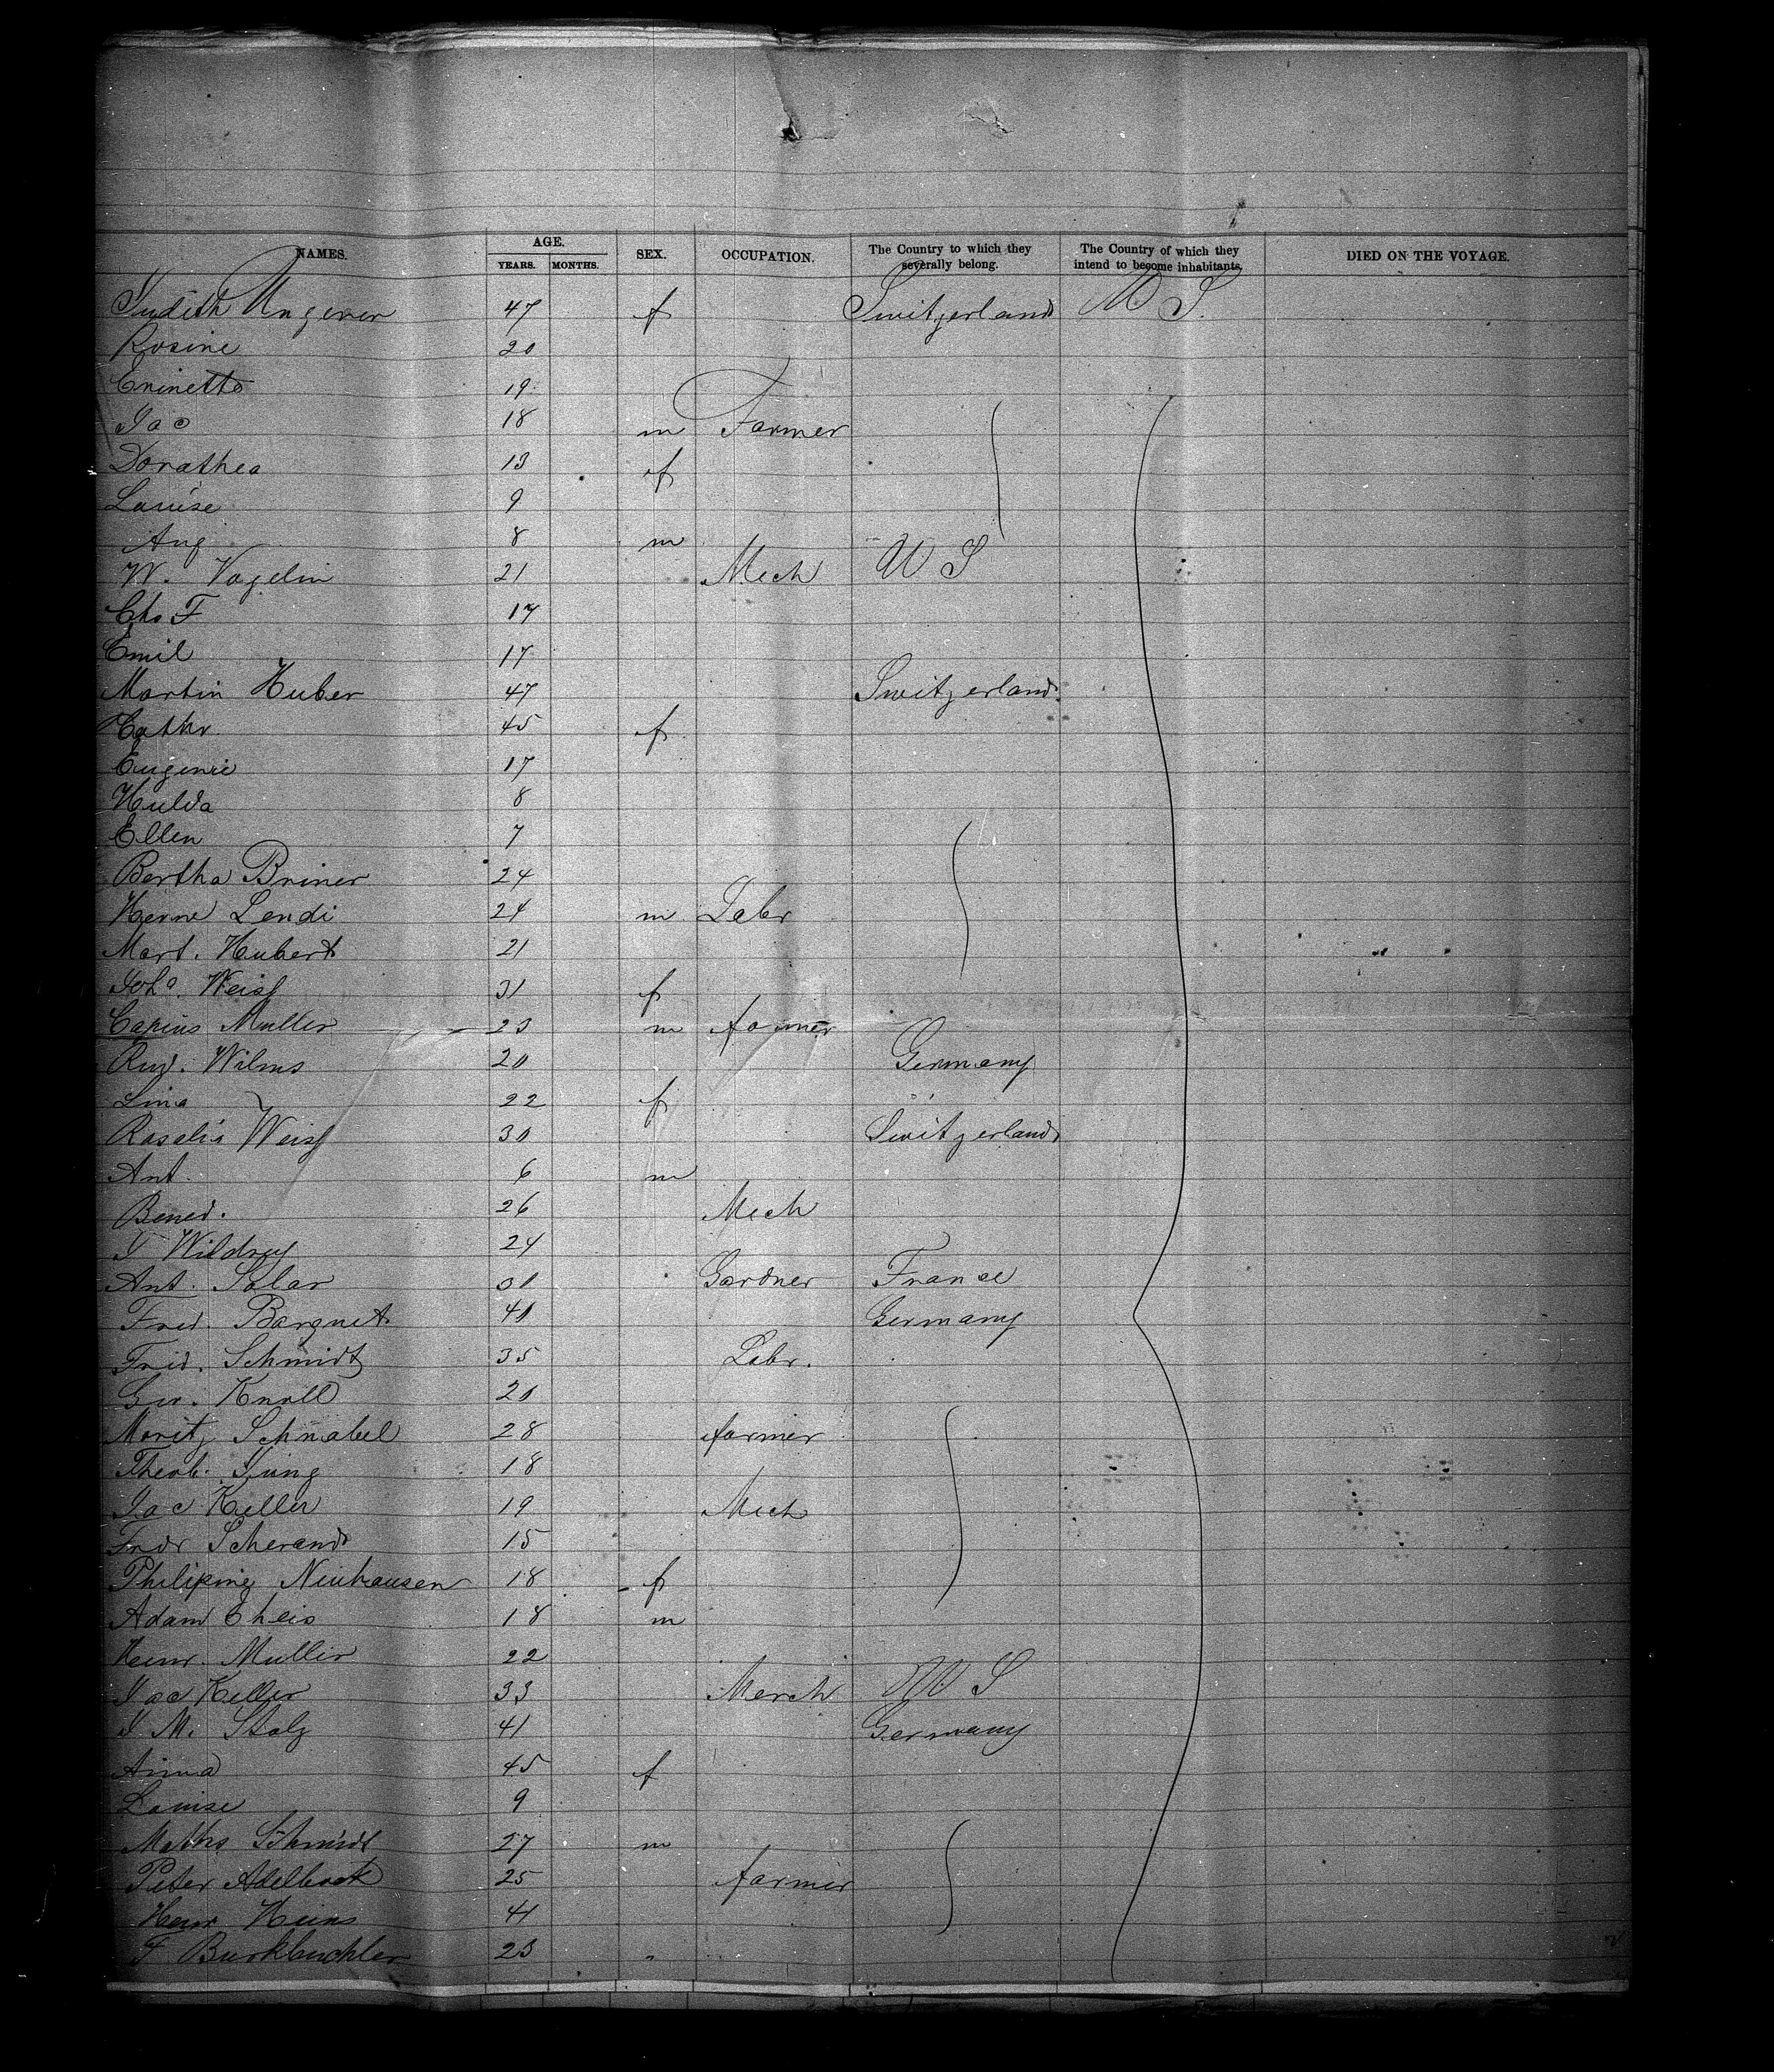 NAMES. AGE. SEX. OCCUPATION. The Country to which they severally belong. The Country of which they intend to become inhabitants. DIED ON THE VOYAGE.
YEARS. MONTHS.
Judith Ungerer 47 f Switzerland U. S.
Rosine 20
19
Jac 18 m Farmer
Dorathea 13 f
Louise 9
Aug 8 m
W. Vogelin 21 Mech U S
Chs F 17
Emil 17
Martin Huber 47 Switzerland
Cathr. 45 f
Eugenie 17
Hulda 8
Ellen 7
Bertha Briner 24
Lendi 24 m Labr
Mart. Hubert 21
Joha. Weiss 31 f
Muller 23 m farmer
Rud. Wilms 20 Germany
Lina 22 f
Rosalis Weiss 30 Switzerland
Ant. 6 m
Bened. 26 Mech
J 24
Ant. Solar Gardner France
Fred. Barquet 40 Germany
Frid. Schmidt 35 Labr.
Geo. Knoll 20
Moritz Schnabel 28 farmer
Theob. Jung 18
Jac Keller 19 Mech
Fredr 15
Neuhausen 18 f
Adam Theis 18 m
Henr. Muller 22
Jac Keller 33 Merch U S
J M. Stolz 41 Germany
Anna 45 f
Louise 9
Maths Schmidt 27 m
Peter 25 farmer
Henr Heins 41
F 23 "